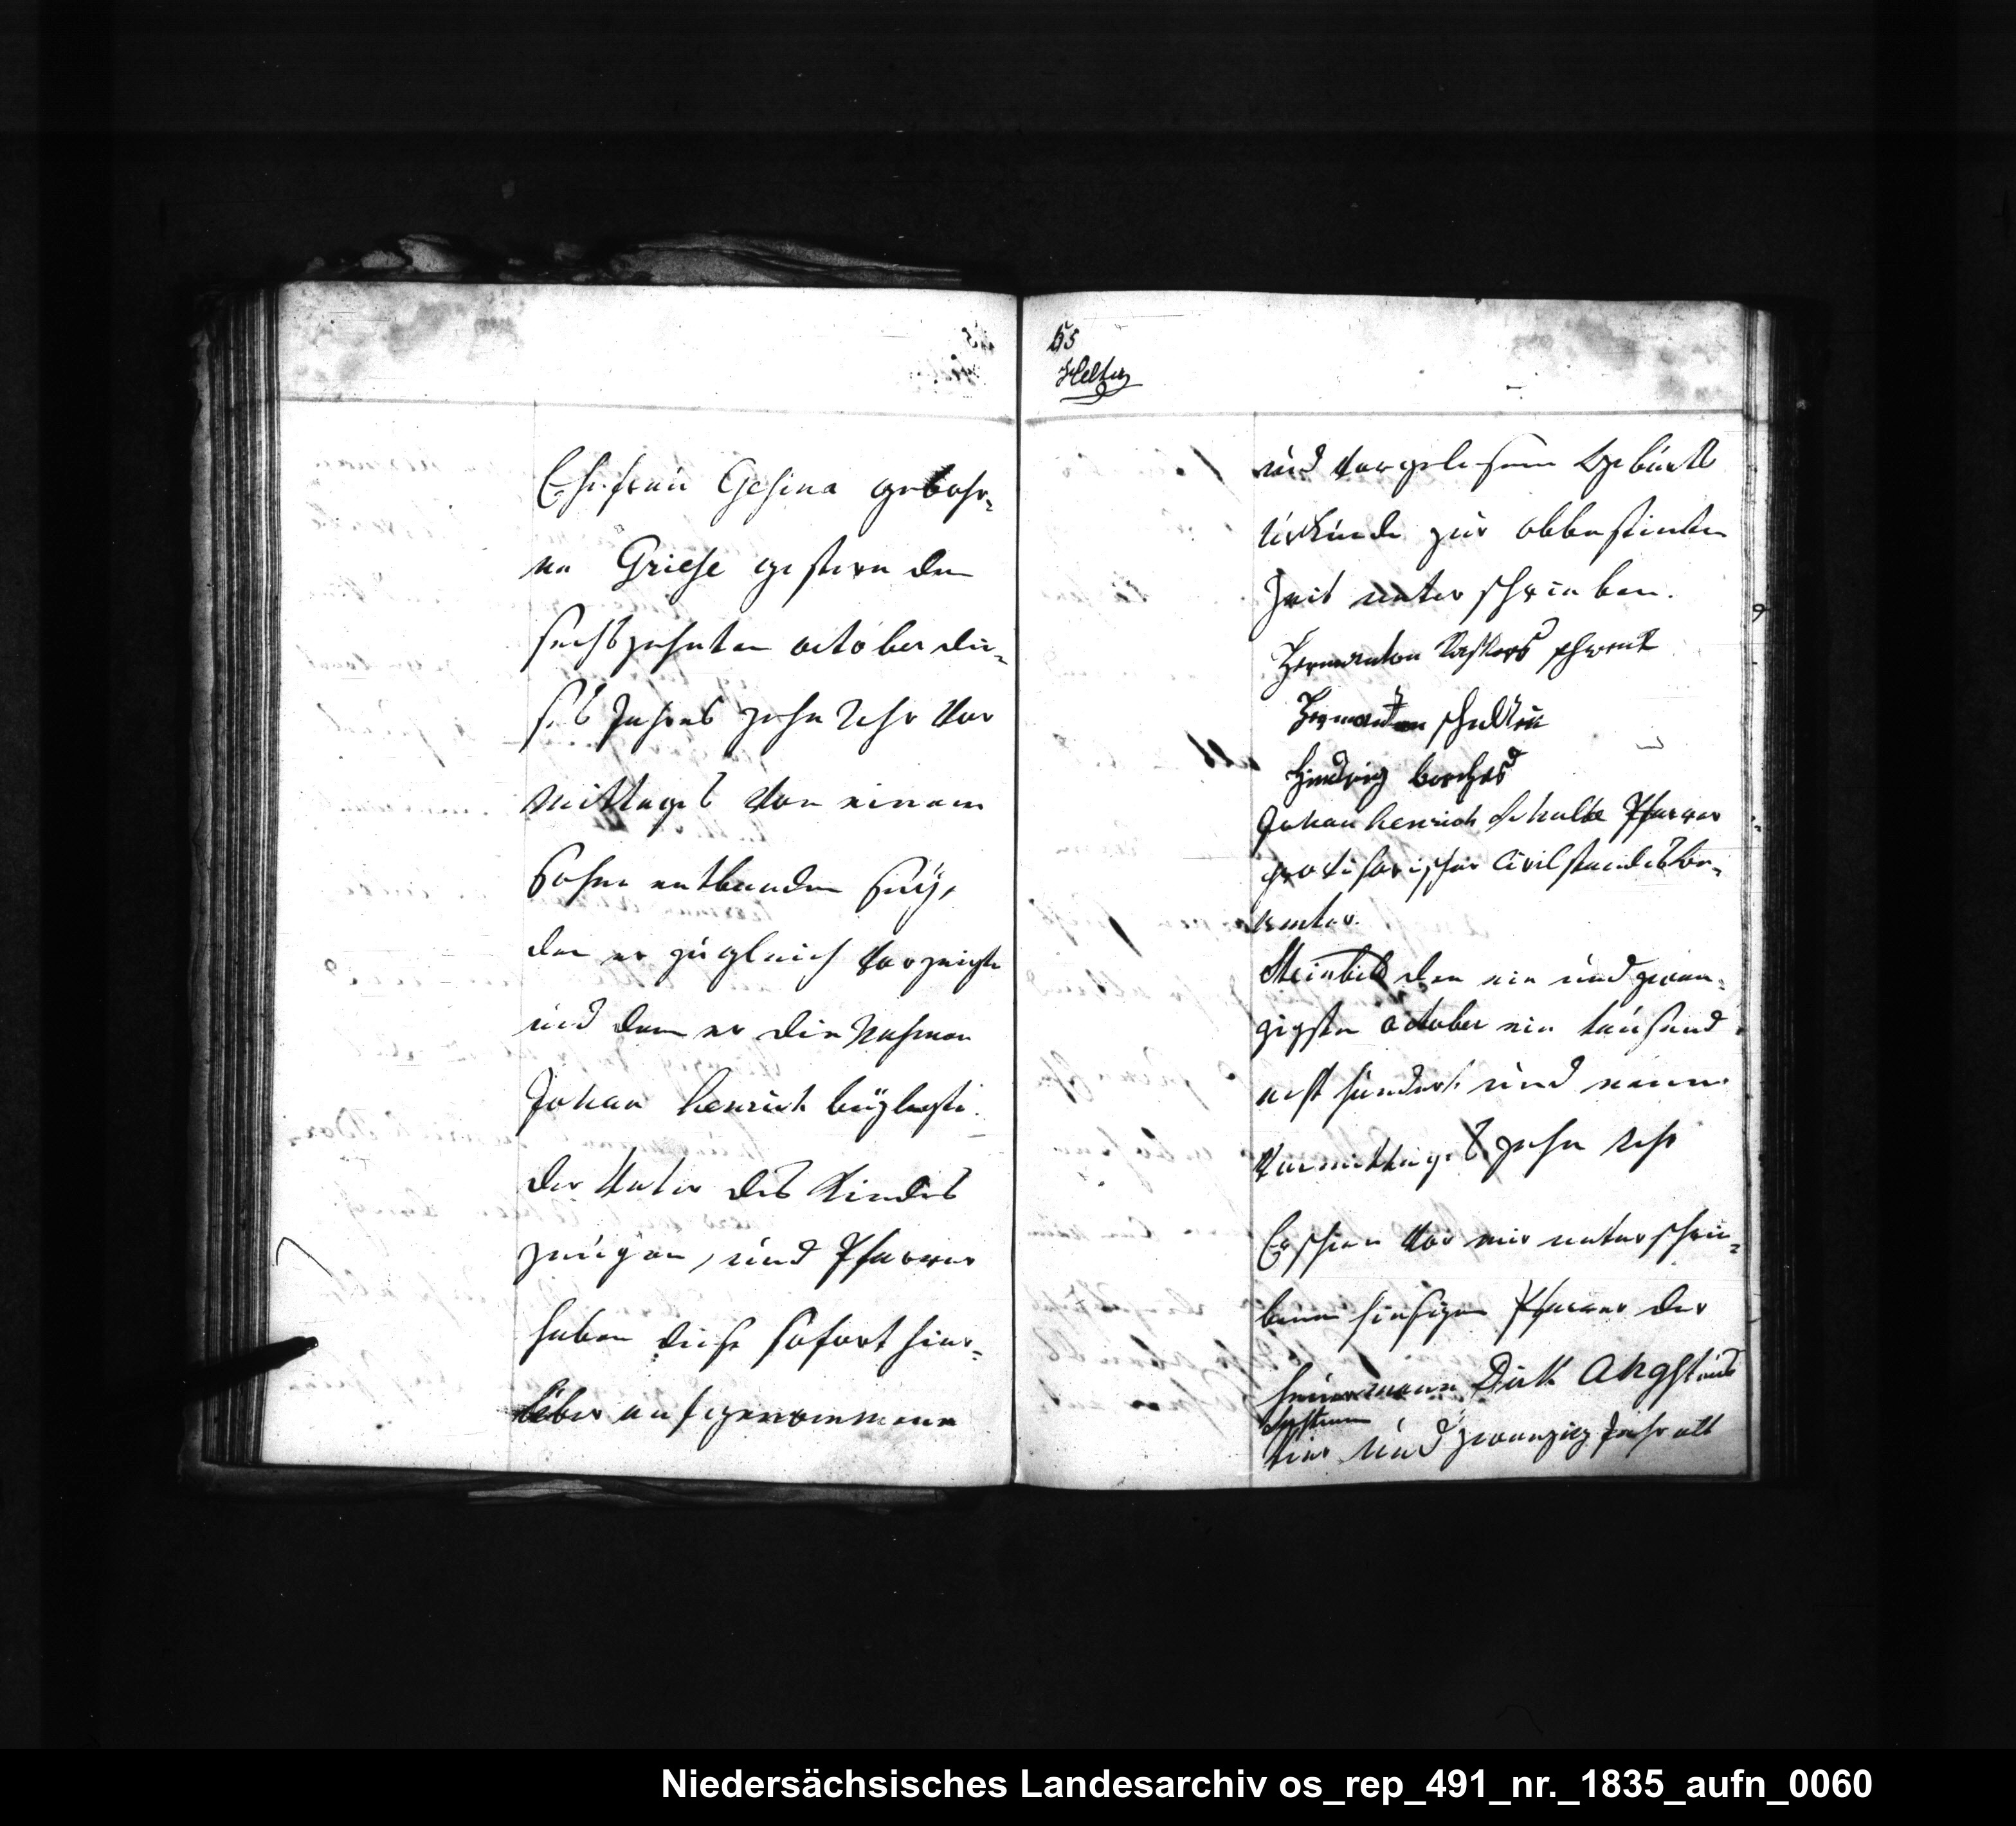 Ehefrau Gesina gebohr-
ne Griese gestern den
sechszehnten october die-
ses Jahres zehn Uhr Vor
mittags von einem
Sohne entbunden sey,
den er zugleich vorzeigte
und dem er die Nahmen
Johan henrich beylegte.
der Vater des Kindes
zeugen, und Pfarrer
haben diese sofort hier-
über aufgenommene
55
und vorgelesene Geburts
urkunde zur obbestimten
Zeit unterschrieben.
Hermanton
Hermanton schulten
Hindrig borchers
Johan henrich Schulte Pfarrer
provisorischer Civilstandesbe-
amter.
Steinbild den ein und zwan-
zigsten october ein tausend
acht hundert und neun
Vormittags zehn Uhr
Erschien vor mir unterschrie-
benen hiesigen Pfarrer der
heuermann Dirk
vier und zwanzig Jahr alt
Niedersächsisches Landesarchiv os_rep_491_nr._1835_aufn_0060